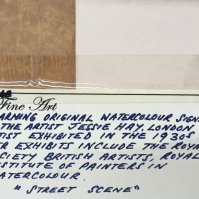 Fine Art
ARMING ORIGINAL WATERCOLOUR SIGN
THE ARTIST JESSIE HAY, LONDON
TIST EXHIBITED IN THE 1930S
ER EXHIBITS INCLUDE THE ROYA
CIETY BRITISH ARTISTS, ROYAL
STITUTE OF PAINTERS IN
WATERCOLOUR.
"STREET SCENE"